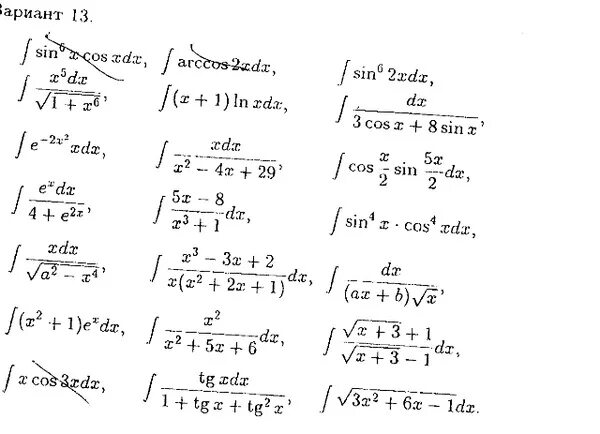 Вариант 13.
∫ sin⁶ x cos xdx, ∫ arccos 2xdx, ∫ sin⁶ 2xdx,
∫ x⁵dx/√(1 + x⁶), ∫(x + 1) ln xdx, ∫ dx/(3 cos x + 8 sin x),
∫ e^(−2x²) xdx, ∫ xdx/(x² − 4x + 29), ∫ cos x/2 sin 5x/2 dx,
∫ eˣdx/(4 + e^(2x)), ∫ (5x − 8)/(x³ + 1) dx, ∫ sin⁴ x · cos⁴ xdx,
∫ xdx/√(a² − x⁴), ∫ (x³ − 3x + 2)/(x(x² + 2x + 1)) dx, ∫ dx/((ax + b)√x),
∫(x² + 1)eˣdx, ∫ x²/(x² + 5x + 6) dx, ∫ (√(x + 3) + 1)/(√(x + 3) − 1) dx,
∫ x cos 3xdx, ∫ tg xdx/(1 + tg x + tg² x), ∫ √(3x² + 6x − 1)dx.